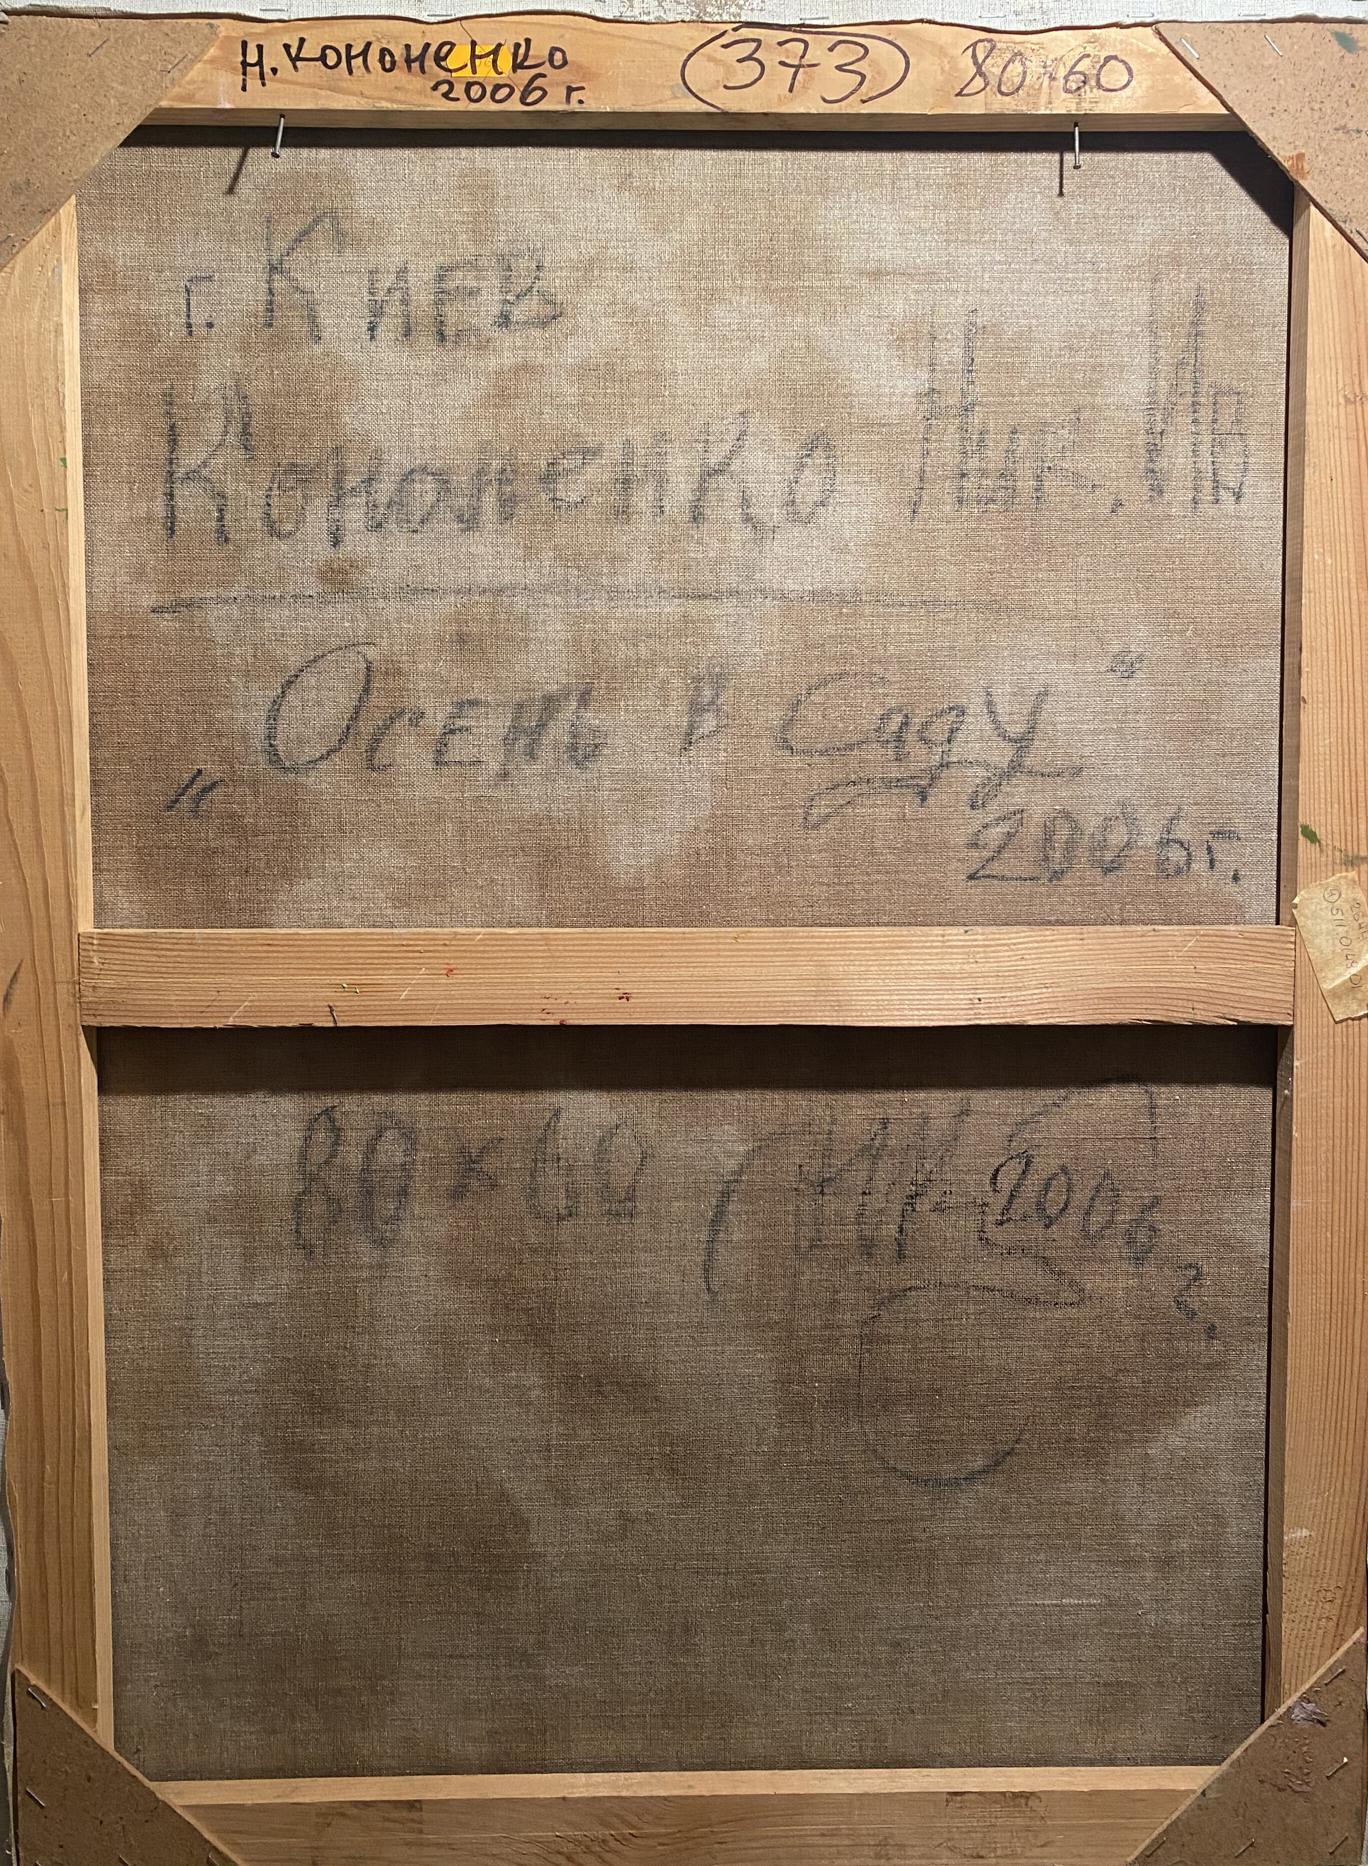 Н. Кононенко (373) 80×60
2006 г.
г. Киев
Кононенко Ник. Ив
„Осень в Саду“
2006г.
80×60
2006
г.